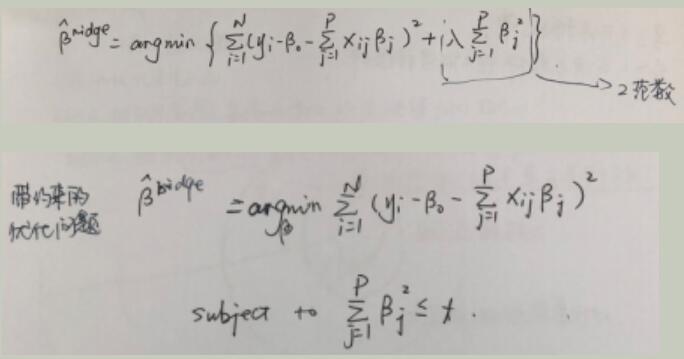 β̂^ridge = argmin { Σ_{i=1}^{N} (y_i - β_0 - Σ_{j=1}^{P} x_{ij} β_j)^2 + λ Σ_{j=1}^{P} β_j^2 }
→ 2范数
带约束的
优化问题
β̂^ridge = argmin_β Σ_{i=1}^{N} (y_i - β_0 - Σ_{j=1}^{P} x_{ij} β_j)^2
subject to Σ_{j=1}^{P} β_j^2 ≤ t.